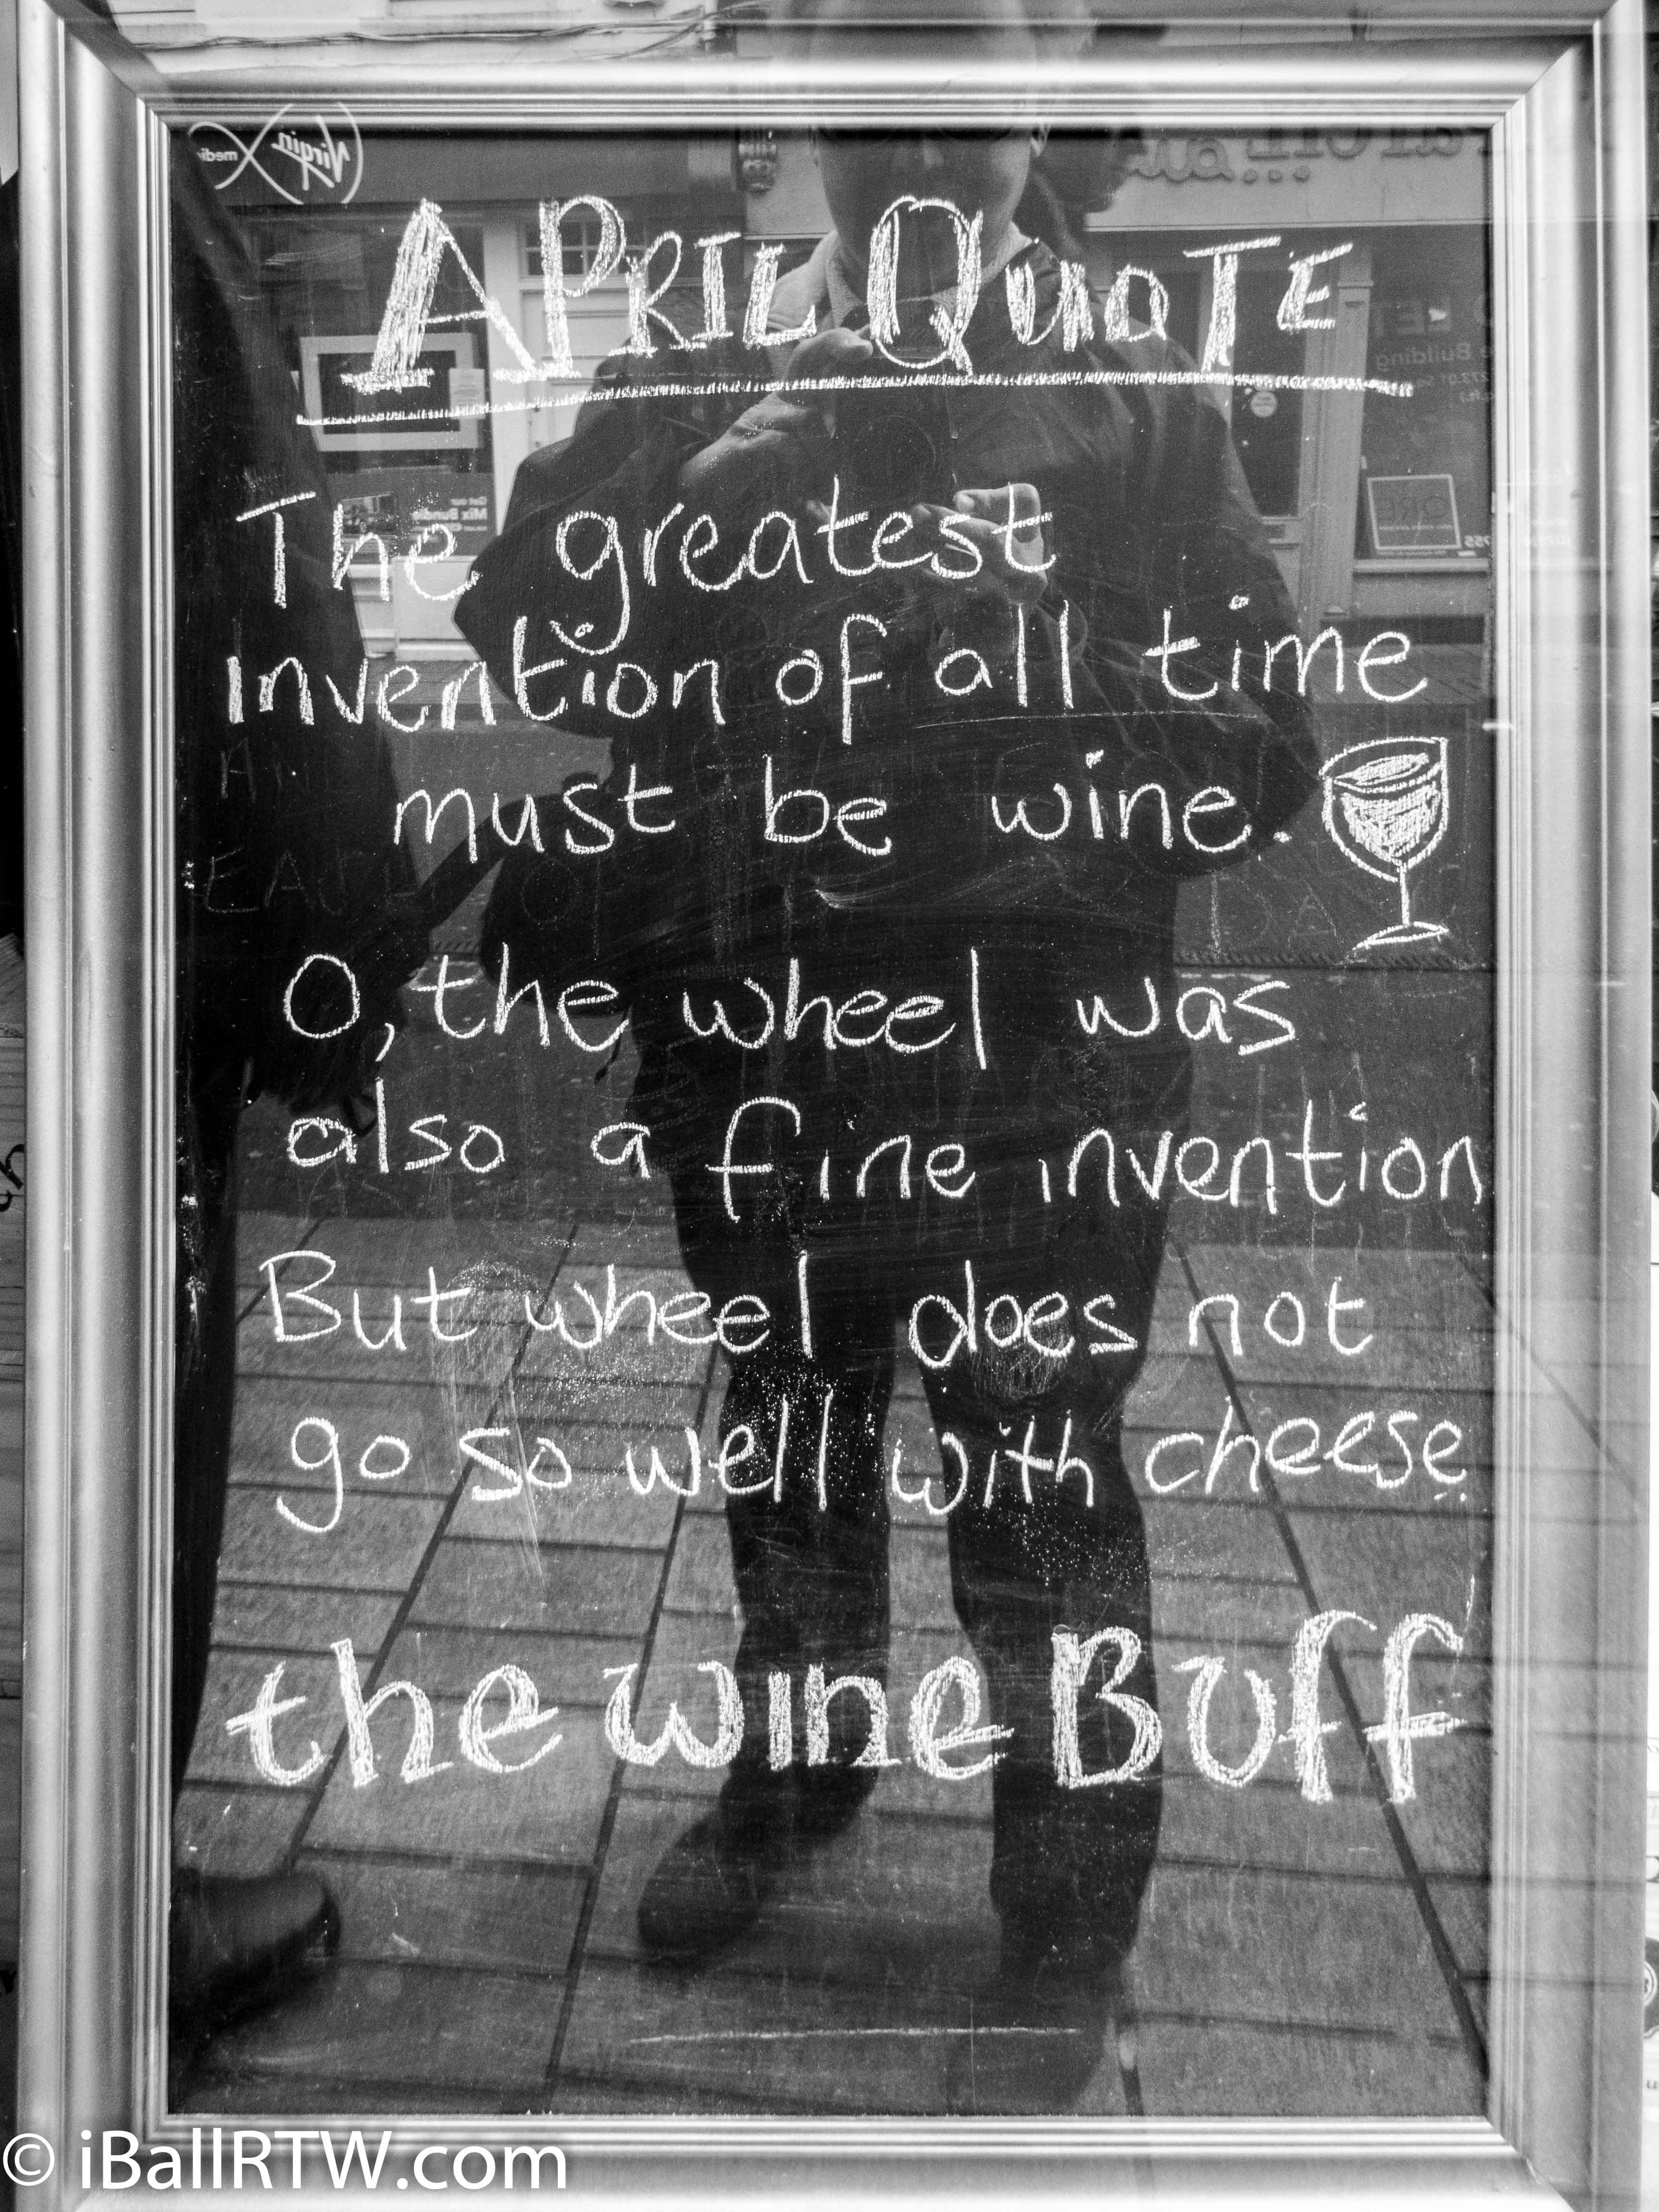 Virgin
media
APRIL QUOTE
The greatest
invention of all time
must be wine.
O, the wheel was
also a fine invention
But wheel does not
go so well with cheese
the wine Buff
Building
Get our
Mix Bundle
© iBallRTW.com